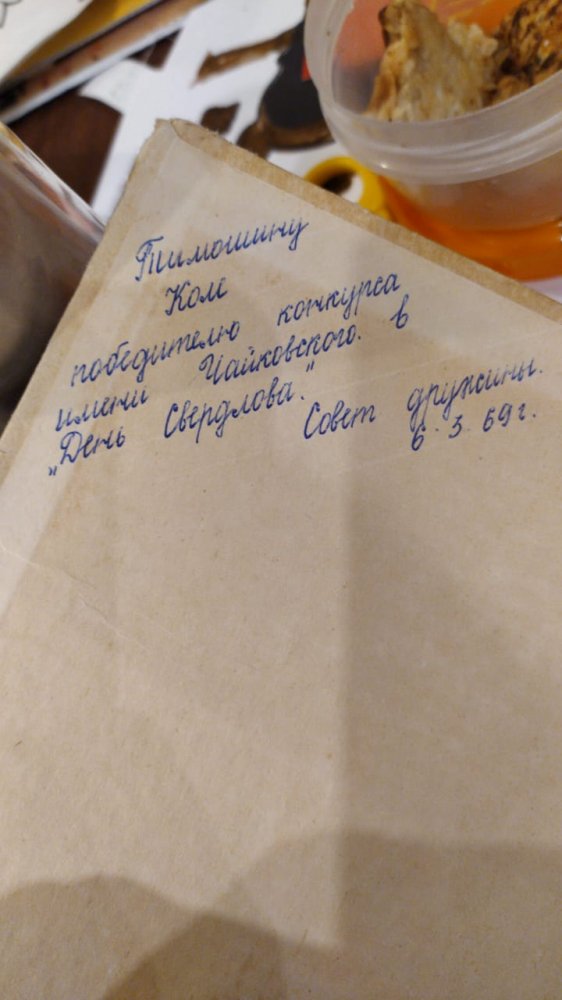 Тимошину
Коле
победителю конкурса
имени Чайковского. в
„День Свердлова."
Совет дружины.
6. 3. 69 г.